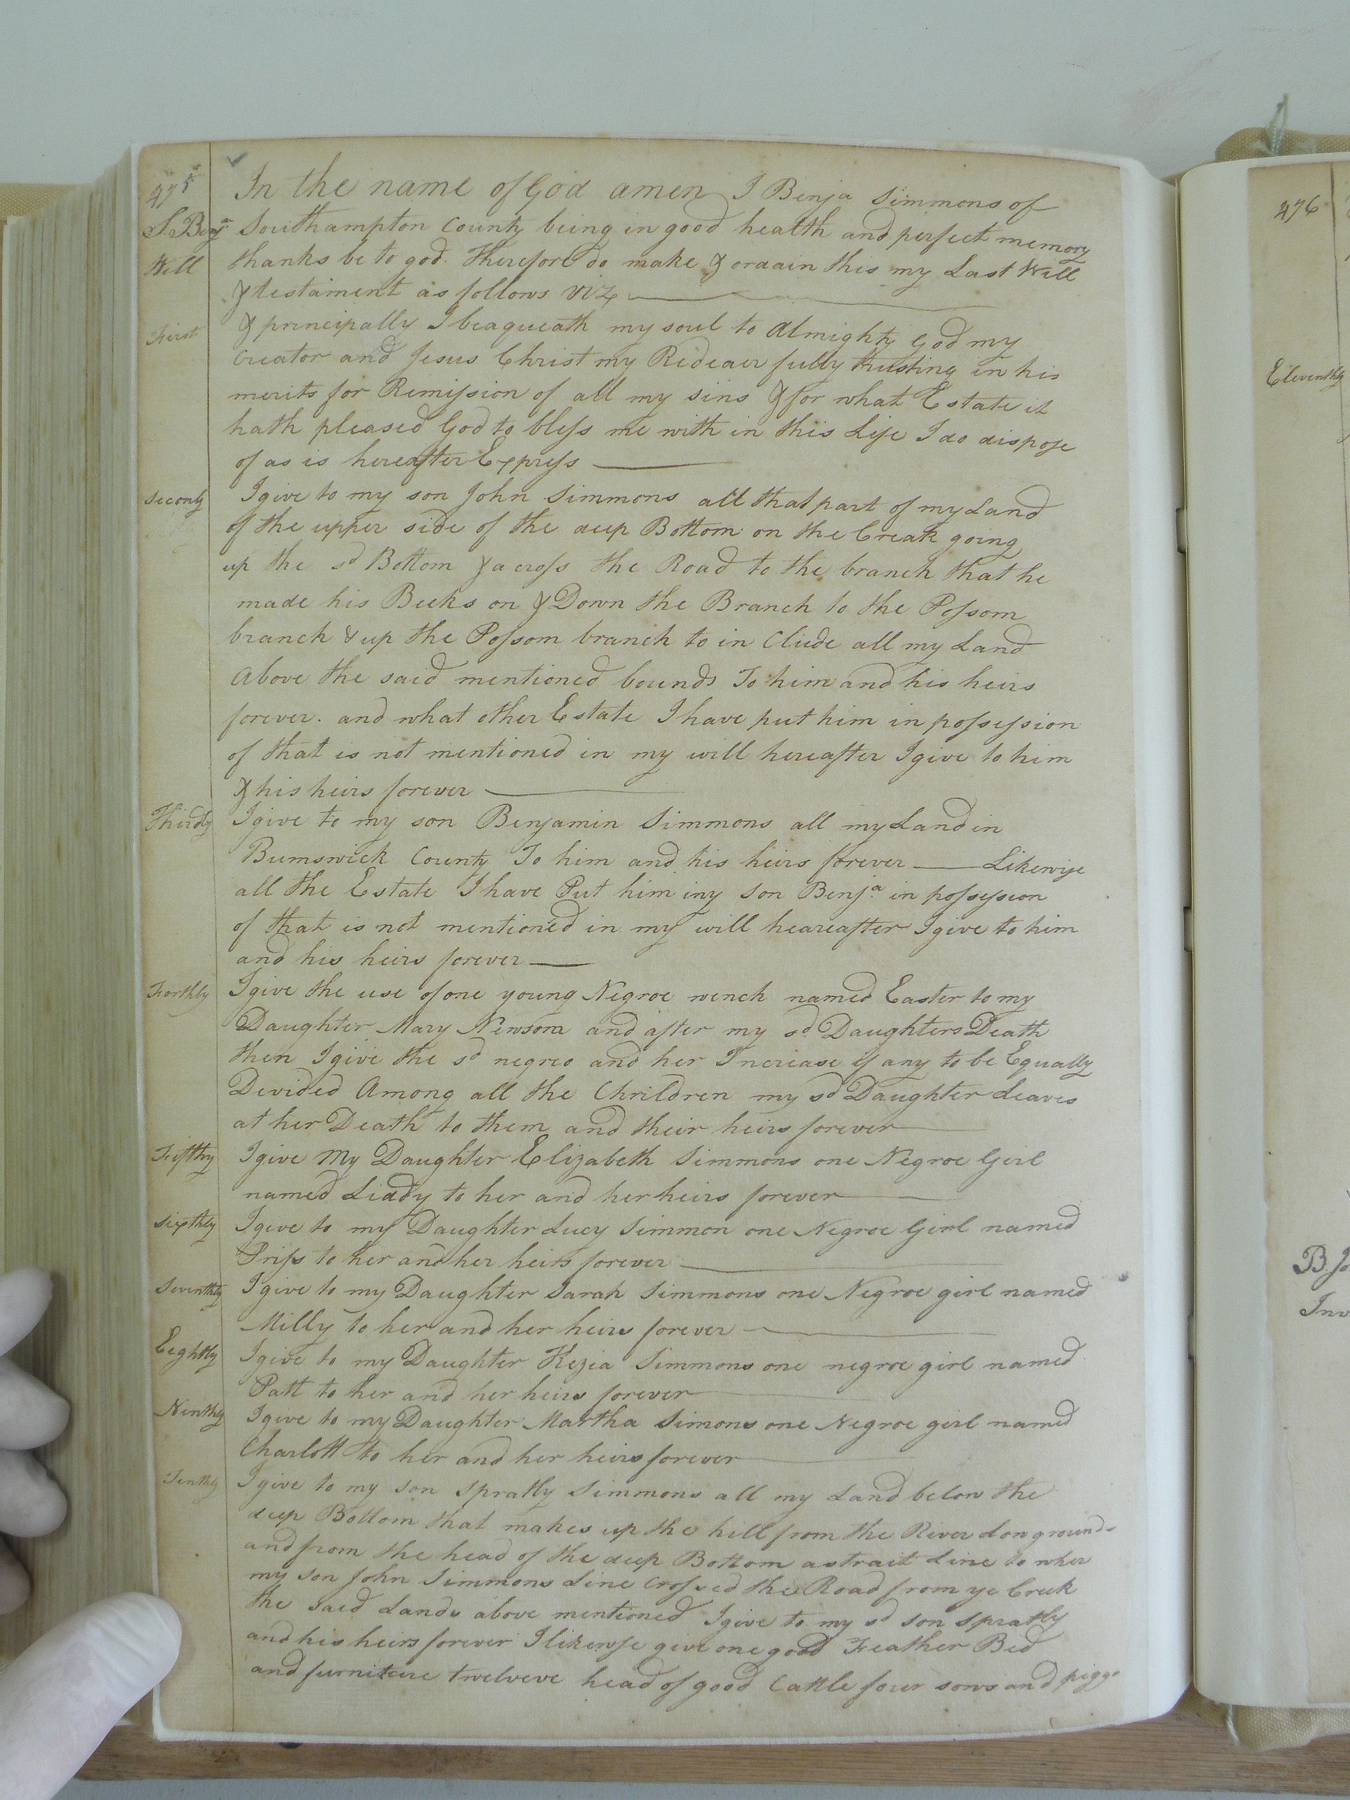 475
S. Benja
Will
In the name of God amen I Benja Simmons of
Southampton County being in good health and perfect memory
thanks be to god. Therefore do make & ordain this my Last Will
& testament as follows Viz
First
& principally I beaqueath my soul to Almighty God my
Creator and Jesus Christ my fully trusting in his
merits for Remission of all my sins & for what Estate it
hath pleased God to bless me with in this Life I do dispose
of as is hereafter Express
Seconly
I give to my son John Simmons all that part of my Land
of the upper side of the deep Bottom on the Creak going
up the sd Bottom & across the Road to the branch that he
made his Beeks on & Down the Branch to the Possom
branch & up the Possom branch to in Clude all my Land
Above the said mentioned bounds To him and his heirs
forever. and what other Estate I have put him in possession
of that is not mentioned in my will hereafter I give to him
& his heirs forever
Thirdly
I give to my son Benjamin Simmons all my Land in
Bumswick County To him and his heirs forever Likewise
all the Estate I have Put him my Son Benja in possession
of that is not mentioned in my will heareafter I give to him
and his heirs forever
Forthly
I give the use of one young Negroe wench named Easter to my
Daughter Mary Newsom and after my sd Daughters Death
then I give the sd negreo and her Increase if any to be Equally
Devided Among all the Chrildren my sd Daughter Leaves
at her Death to them and their heirs forever
Fifthly
I give My Daughter Elizabeth Simmons one Negroe Girl
named Liddy to her and her heirs forever
Sixthly
I give to my Daughter Lucy Simmon one Negroe Girl named
Priss to her and her heirs forever
Seventhly
I give to my Daughter Sarah Simmons one Negroe girl named
Milly to her and her heirs forever
Eeghtly
I give to my Daughter Kezia Simmons one negroe girl named
Patt to her and her heirs forever
Ninthly
I give to my Daughter Martha Simons one Negroe girl named
Charlott to her and her heirs forever
Tenthly
I give to my son Spratly Simmons all my Land below the
deep Bottom that makes up the hill from the River Longrounds
and from the head of the deep Bottom astrait Line to wher
my son John Simmons Line Crossed the Road from ye Creek
the said Lands above mentioned I give to my sd son Spratly
and his heirs forever I likewise give one good Feather Bed
and furniture twelveve head of good Cattle four sows and piggs
476
Eleventhly
B. Jo
Inv